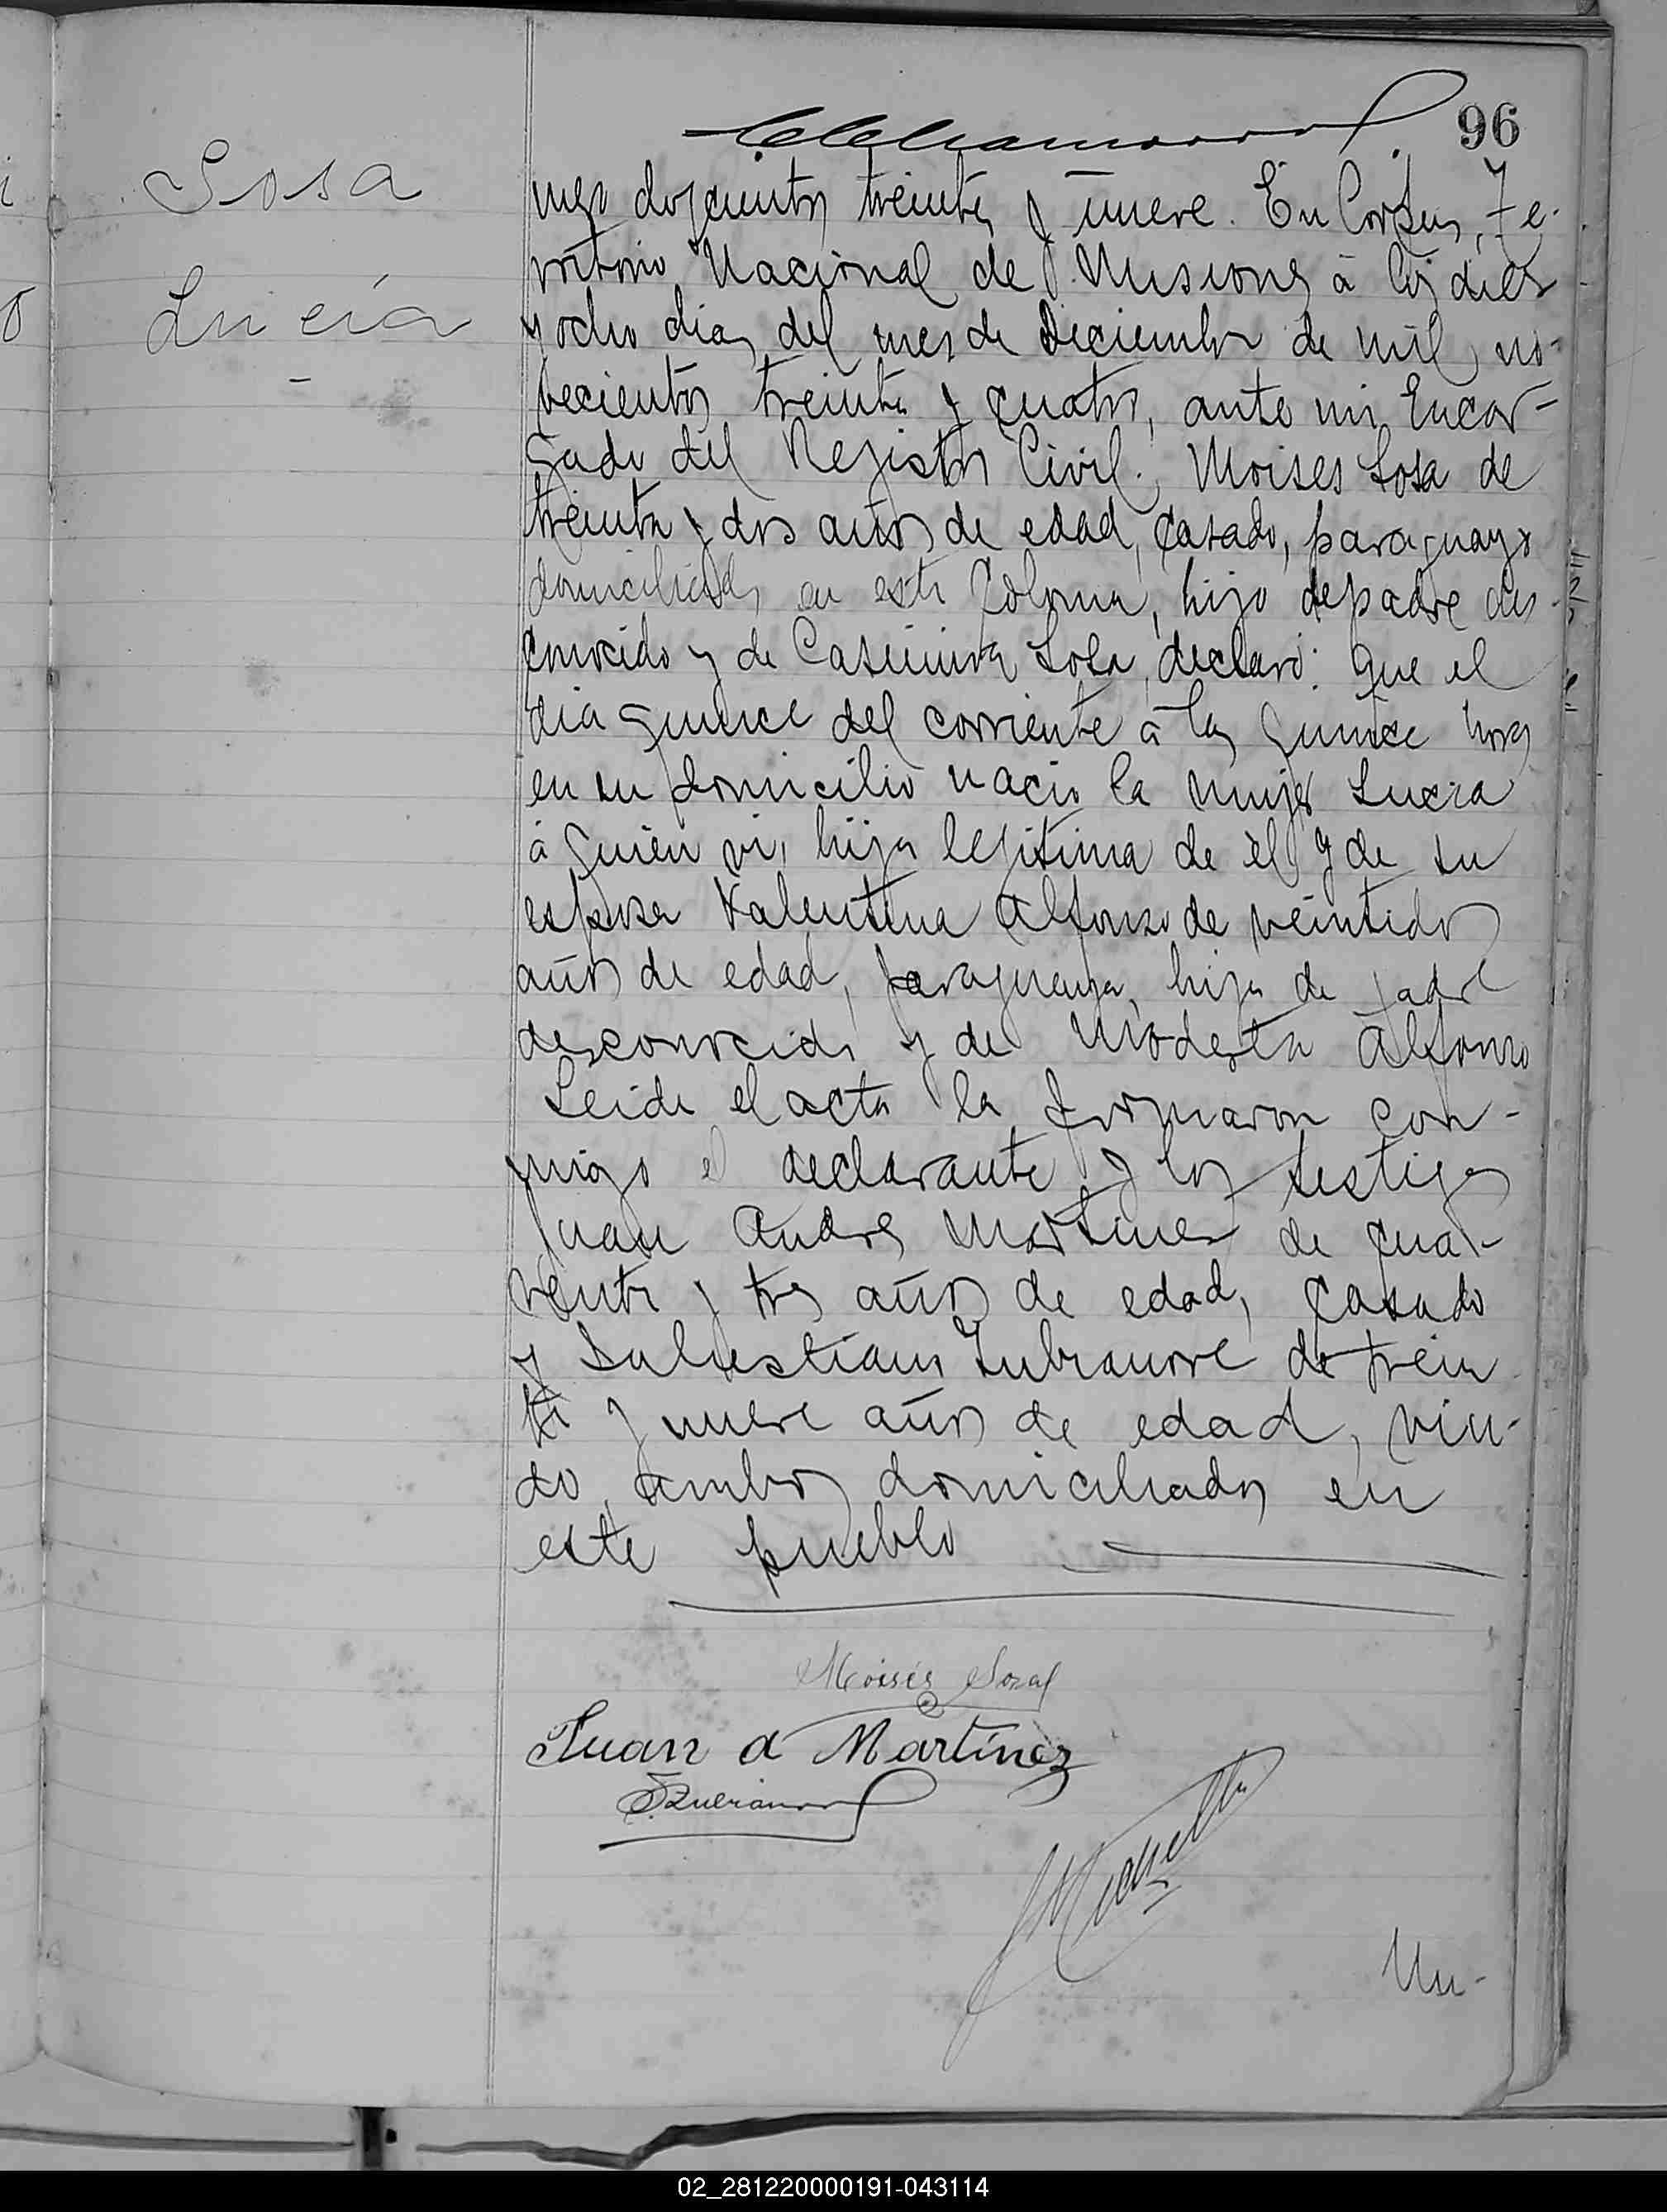 96
Sosa
Lucia
mero doscientos treinta y nueve. En Corpus, Te-
rritorio Nacional de Misiones á los diez
y ocho dias del mes de Diciembre de mil no-
vecientos treinta y cuatro, ante mi Encar-
gado del Registro Civil. Moises Sosa de
treinta y dos años de edad, casado, paraguayo
domiciliado en esta Colonia, hijo de padre des-
conocido y de Casimira Sosa, declaró: Que el
dia quince del corriente á las quince horas
en su domicilio nació la mujer Lucia
á quien vi, hija legitima de él y de su
esposa Valentina Alfonso de veintidos
años de edad, paraguaya, hija de padre
desconocido y de Modesta Alfonso
Leida el acta la firmaron con-
migo el declarante y los testigos
Juan Andres Martinez de cua-
renta y tres años de edad, casado
y Salustiano de trein
ta y nueve años de edad, viu-
do, ambos domiciliados en
este pueblo
Moisés Sosa
Juan A Martínez
Nu-
02_281220000191-043114